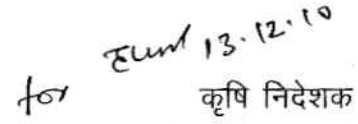 13.12.10
for कृषि निदेशक